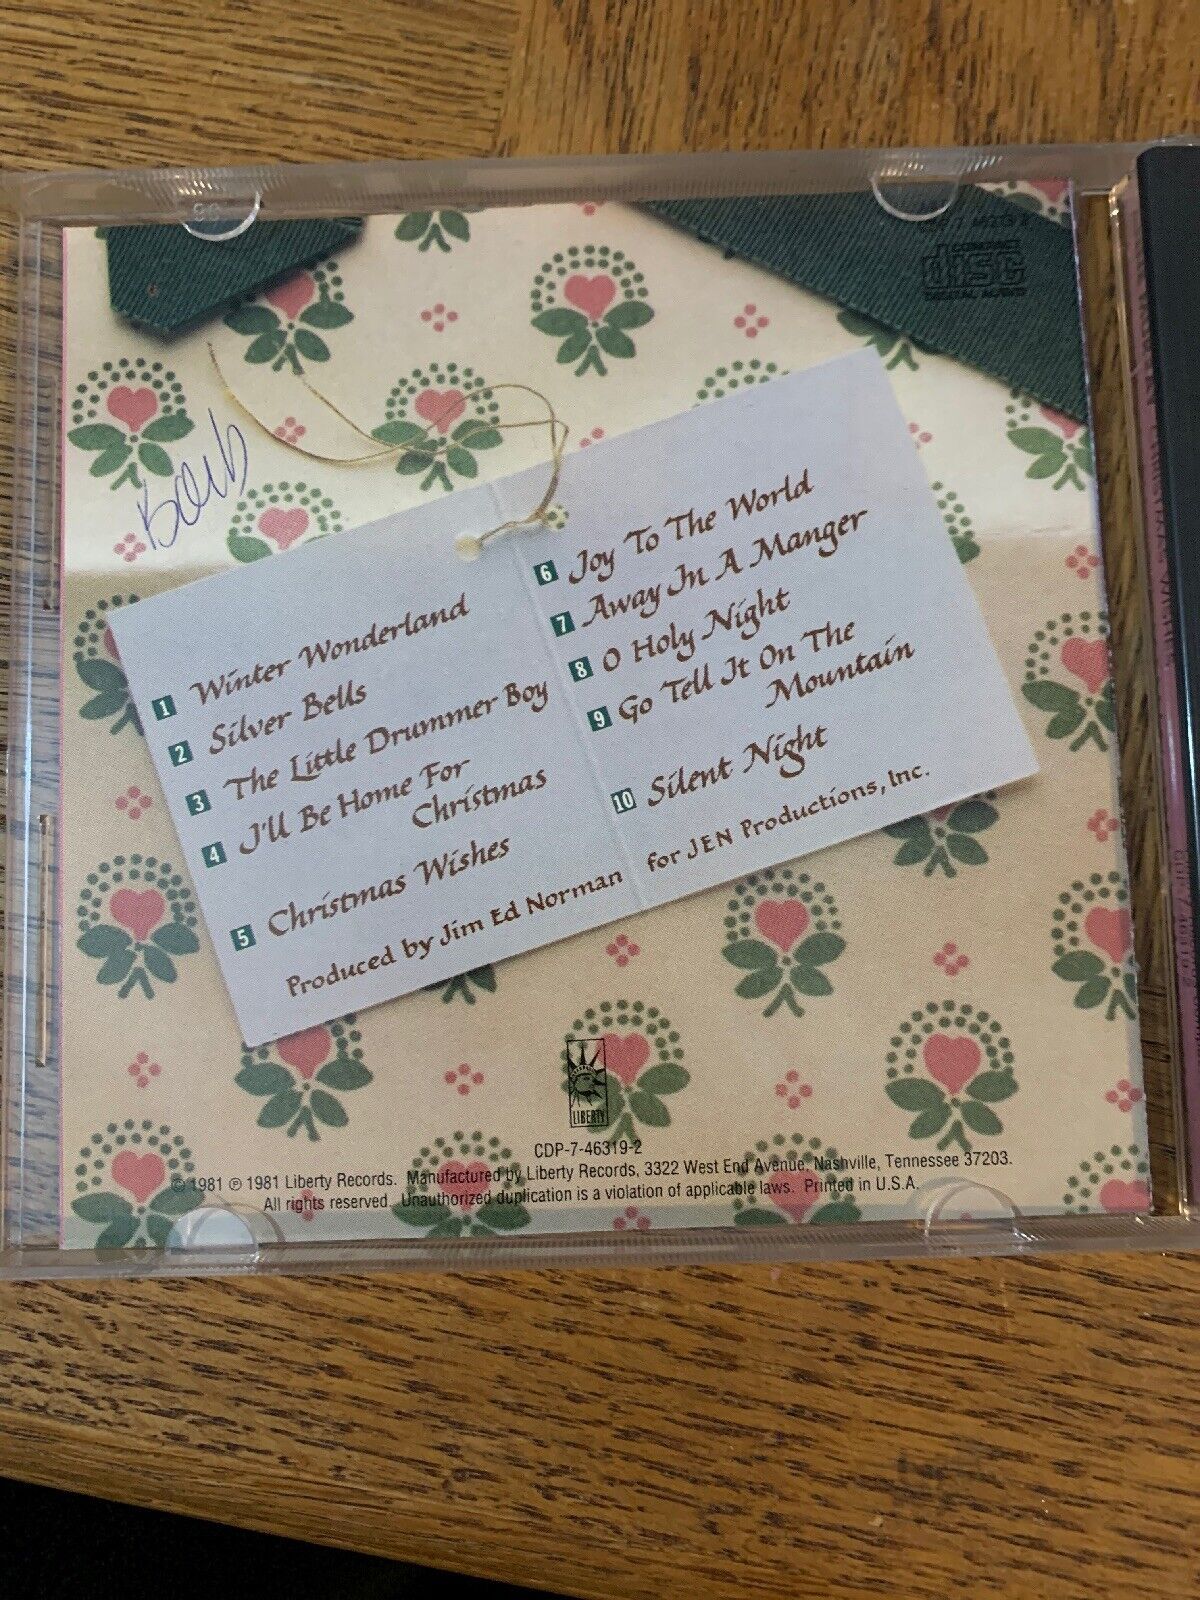 CDP 7 46319 2
COMPACT
disc
DIGITAL AUDIO
1 Winter Wonderland
2 Silver Bells
3 The Little Drummer Boy
4 I'll Be Home For
Christmas
5 Christmas Wishes
6 Joy To The World
7 Away In A Manger
8 O Holy Night
9 Go Tell It On The
Mountain
10 Silent Night
Produced by Jim Ed Norman for JEN Productions, Inc.
LIBERTY
CDP-7-46319-2
© 1981 ℗ 1981 Liberty Records. Manufactured by Liberty Records, 3322 West End Avenue, Nashville, Tennessee 37203.
All rights reserved. Unauthorized duplication is a violation of applicable laws. Printed in U.S.A.